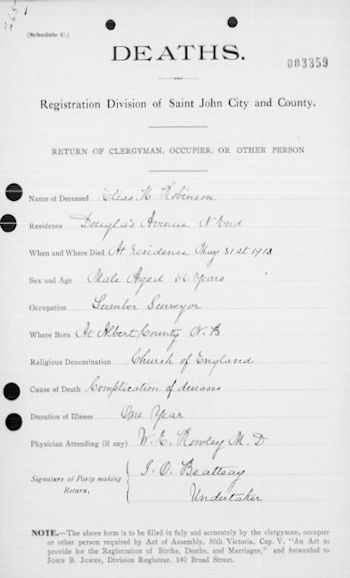 (Schedule C.)
DEATHS.
003359
Registration Division of Saint John City and County.
RETURN OF CLERGYMAN, OCCUPIER, OR OTHER PERSON
Name of Deceased Elias H Robinson
Residence Douglas Avenue N End
When and Where Died At residence May 31st 1913
Sex and Age Male Aged 66 Years
Occupation Lumber Surveyor
Where Born At Albert County N. B
Religious Denomination Church of England
Cause of Death Complication of diseases
Duration of Illness One Year
Physician Attending (if any) W. E. Rowley M. D
Signature of Party making Return, I. O. Beatteay
Undertaker
NOTE.—The above form is to be filled in fully and accurately by the clergyman, occupier
or other person required by Act of Assembly, 50th Victoria, Cap. V, "An Act to
provide for the Registration of Births, Deaths, and Marriages," and forwarded to
JOHN B. JONES, Division Registrar, 140 Broad Street.